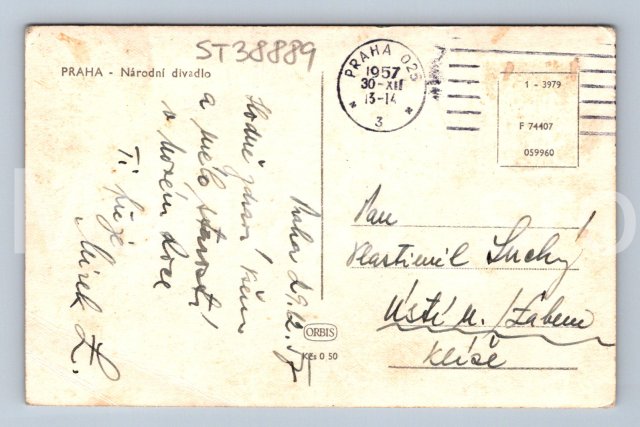 ST38889
PRAHA - Národní divadlo
PRAHA 025
1957
30-XII
13-14
3
1 - 3979
F 74407
059960
Praha 29.12.57
Hodně zdraví Všem
a málo starostí
v novém roce
Ti přeje
Mirek Z.
Pan
Vlastimil Suchý
Ústí n./Labem
Klíše
ORBIS
Kčs 0,50